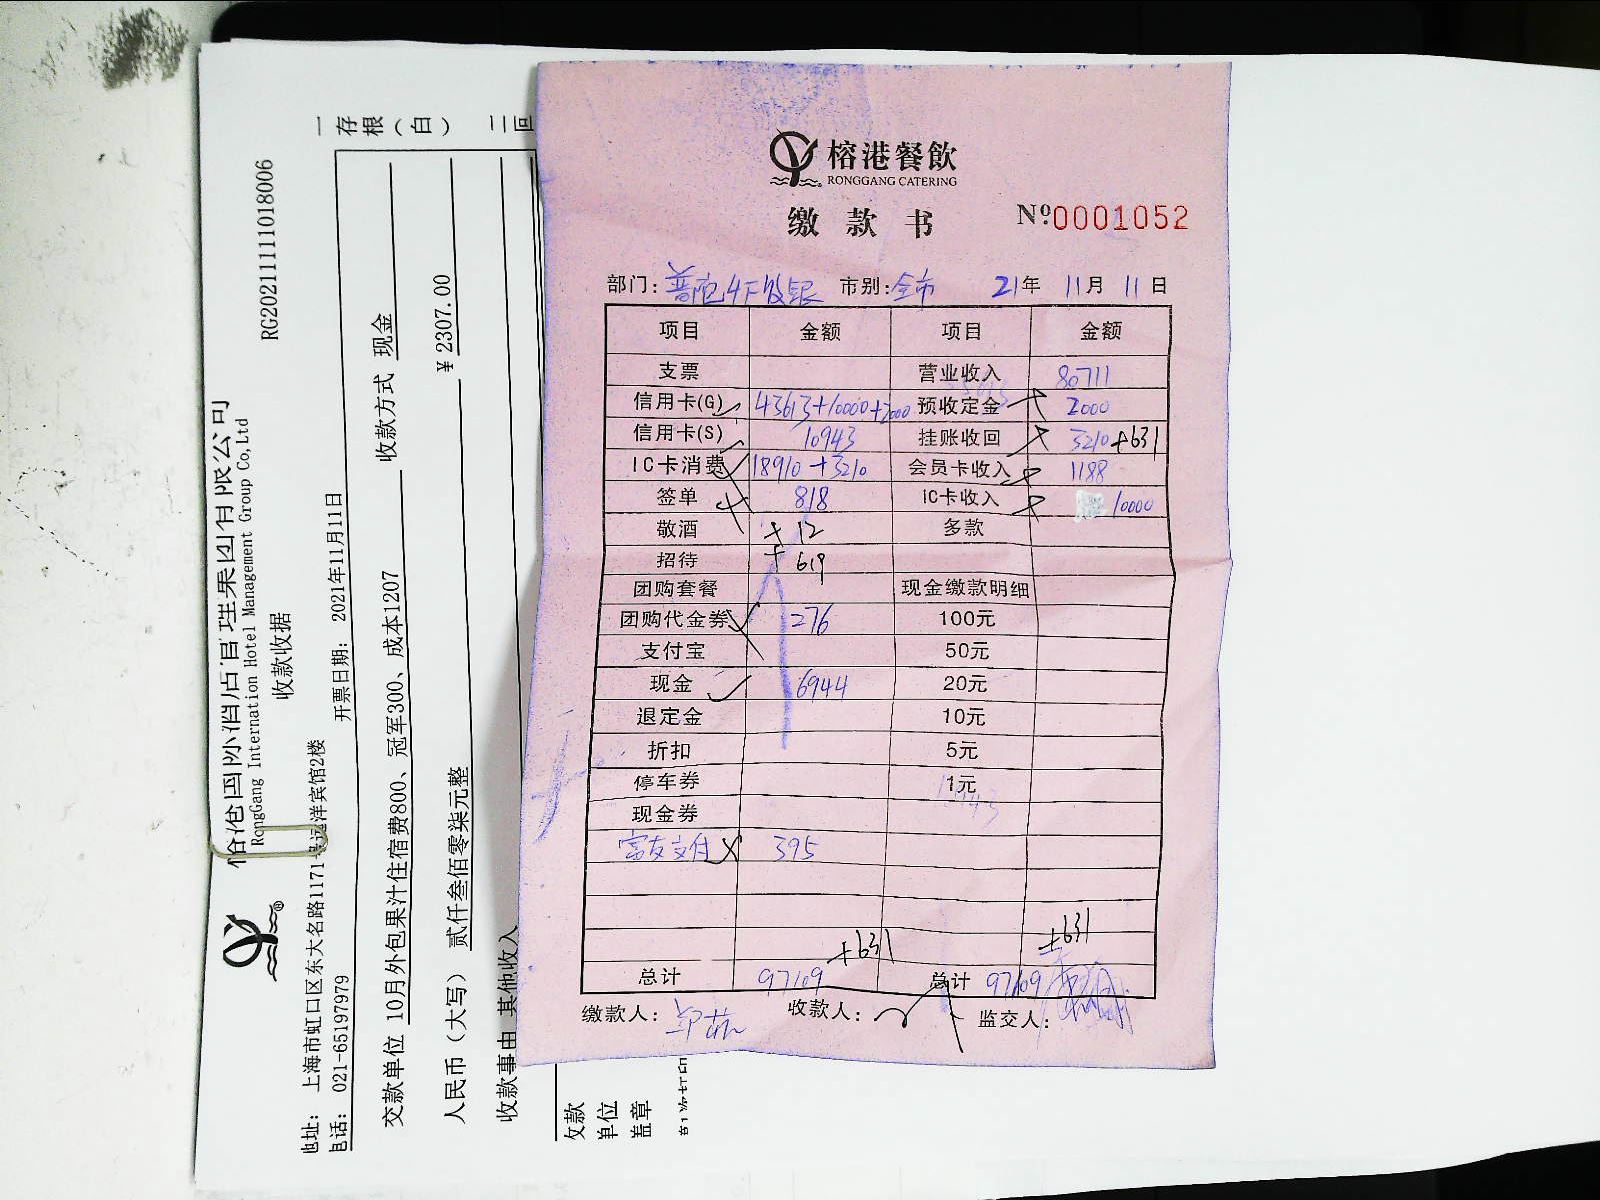 榕港餐飲
RONGGANG CATERING
缴款书 Nº0001052
部门: 市别:全市 21年 11月 11日
项目 金额 项目 金额
支票 营业收入 80711
信用卡(G) 43613+10000+2000 预收定金 2000
信用卡(S) 10943 挂账收回 3210+631
IC卡消费 18910+3210 会员卡收入 1188
签单 818 IC卡收入 10000
敬酒 +12 多款
招待 +619
团购套餐 现金缴款明细
团购代金券 276 100元
支付宝 50元
现金 6944 20元
退定金 10元
折扣 5元
停车券 1元
现金券
富友支付 395
+631 +631
总计 97109 总计 97109
缴款人: 收款人: 监交人:
一存根(白) 二回
RG20211111018006
RongGang Internation Hotel Management Group Co,Ltd
收款收据
地址: 上海市虹口区东大名路1171号远洋宾馆2楼
电话: 021-65197979 开票日期: 2021年11月11日
交款单位 10月外包果汁住宿费800、冠军300、成本1207 收款方式 现金
人民币(大写) 贰仟叁佰零柒元整 ¥ 2307.00
收款事由 其他收入
收款
单位
盖章